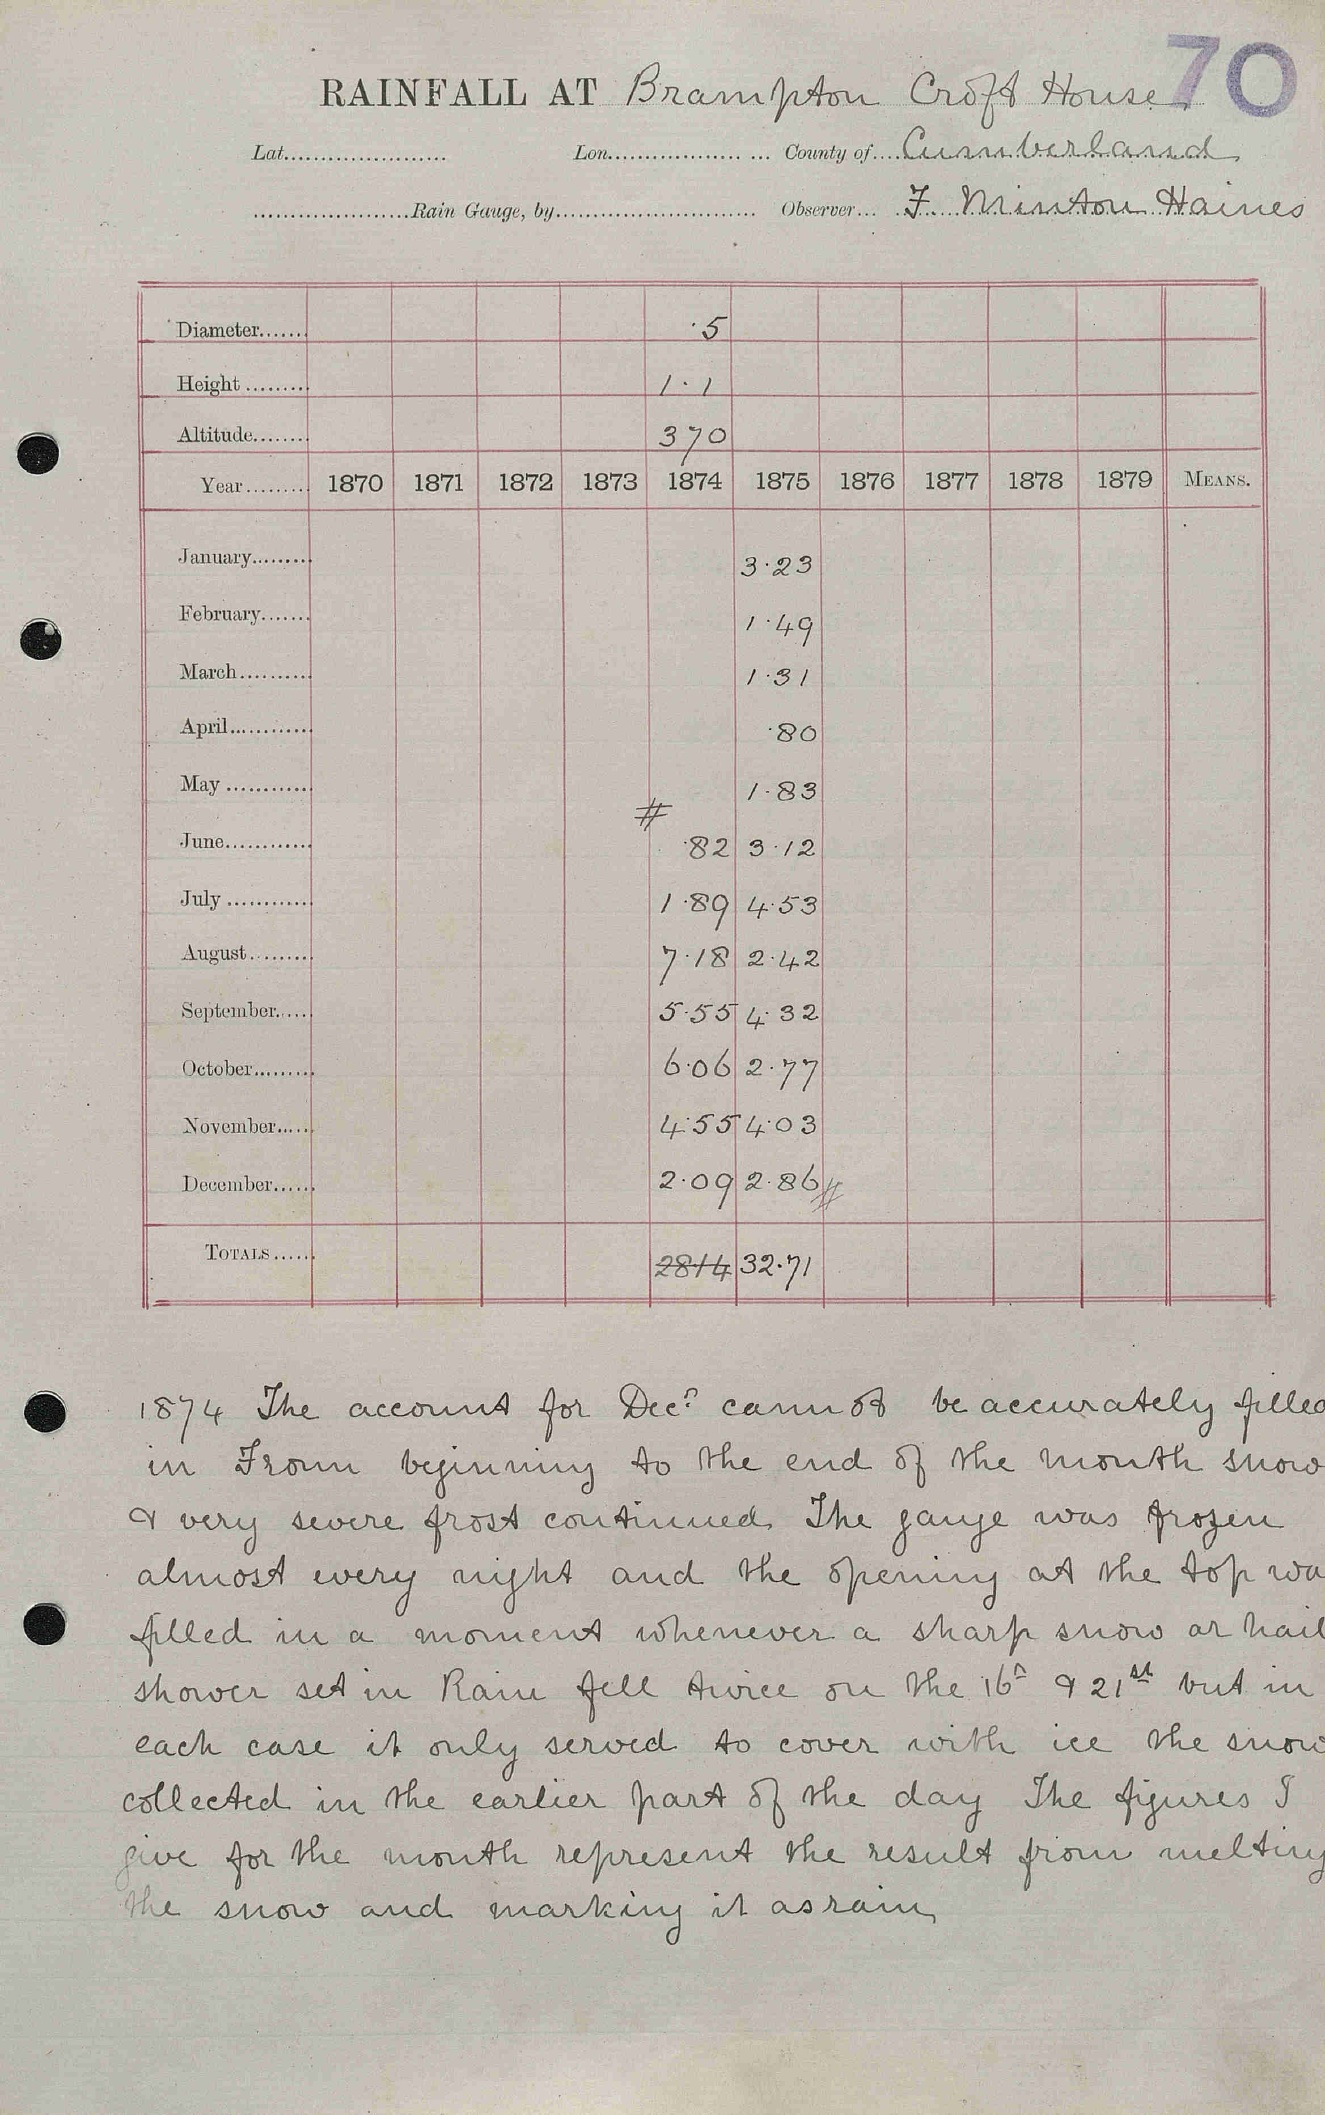 70
RAINFALL AT Brampton Croft House
Lat...................... Lon.................. ... County of....Cumberland
......................Rain Gauge, by............................ Observer... F. Minton Haines
Diameter....... ·5
Height ......... 1·1
Altitude........ 370
Year......... 1870 1871 1872 1873 1874 1875 1876 1877 1878 1879 MEANS.
January......... 3·23
February....... 1·49
March.......... 1·31
April............ ·80
May ............ 1·83
#
June............ ·82 3·12
July ............ 1·89 4·53
August......... 7·18 2·42
September...... 5·55 4·32
October......... 6·06 2·77
November...... 4·55 4·03
December...... 2·09 2·86 #
TOTALS...... 2814 32·71
1874 The account for Decr cannot be accurately filled
in From beginning to the end of the month snow
& very severe frost continued. The gauge was frozen
almost every night and the opening at the top wa
filled in a moment whenever a sharp snow or hail
shower set in Rain fell twice on the 16h & 21st but in
each case it only served to cover with ice the snow
collected in the earlier part of the day The figures I
give for the month represent the result from melting
the snow and marking it as rain